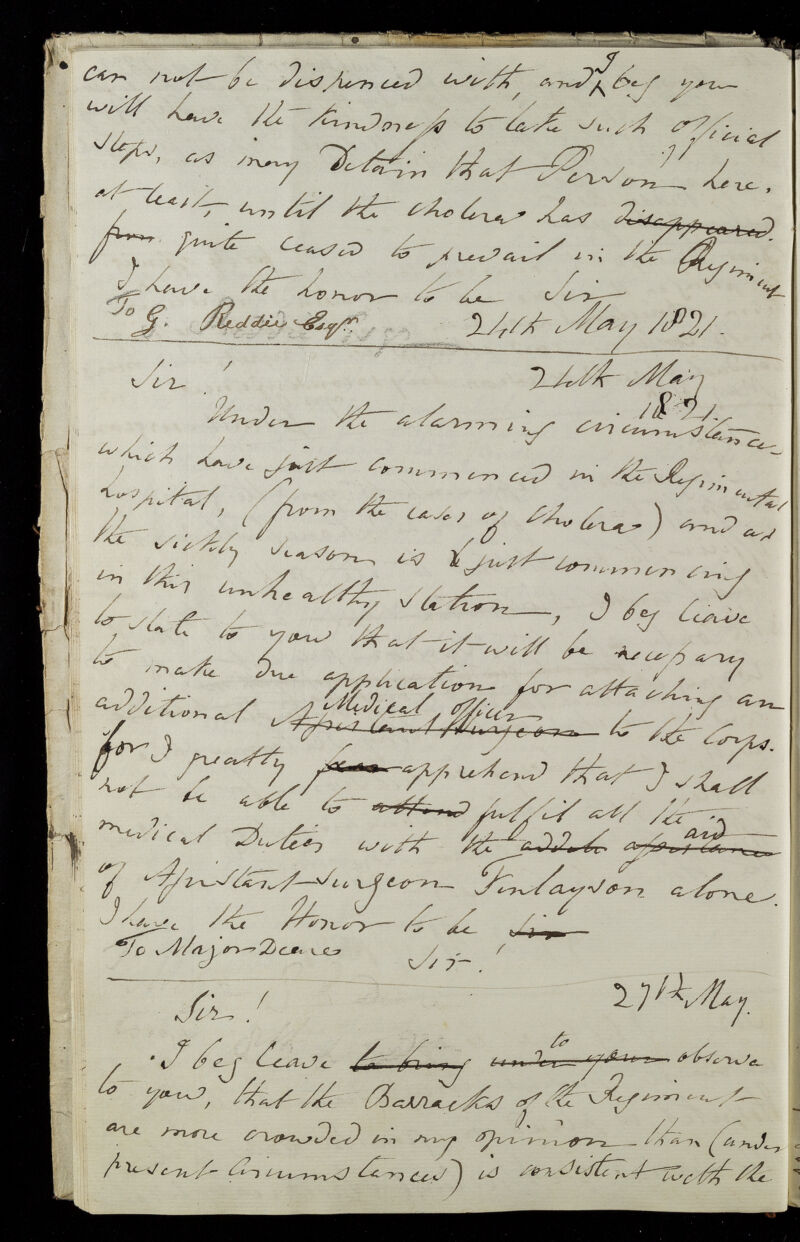 can not be dispenced with, and I beg you
will have the kindness to take such official
steps, as may Detain that Person here,
at least, until the cholera has disappeared.
from quite ceased to prevail in the Regiment
I have the honor to be Sir
To G. Reddie Esqr. 24th May 1821.
Sir! 24th May
1821
Under the alarming circumstances
which have just commenced in the Regimental
hospital, (from the cases of Cholera) and as
the sickly season is just commencing
in this unhealthy station, I beg leave
to state to you that it will be necessary
to make due application for attaching an
Medical officer
additional Assistant Surgeon to the Corps.
for I greatly fear apprehend that I shall
not be able to attend fulfil all the
aid
medical Duties with the assistance
of Assistant Surgeon Finlayson alone.
I have the Honor to be Sir
To Major Deeares Sir!
Sir! 27th May.
to
I beg leave to bring under your observe
to you, that the Barracks of the Regiment
are more crowded in my opinion than (under
present Circumstances) is consistent with the